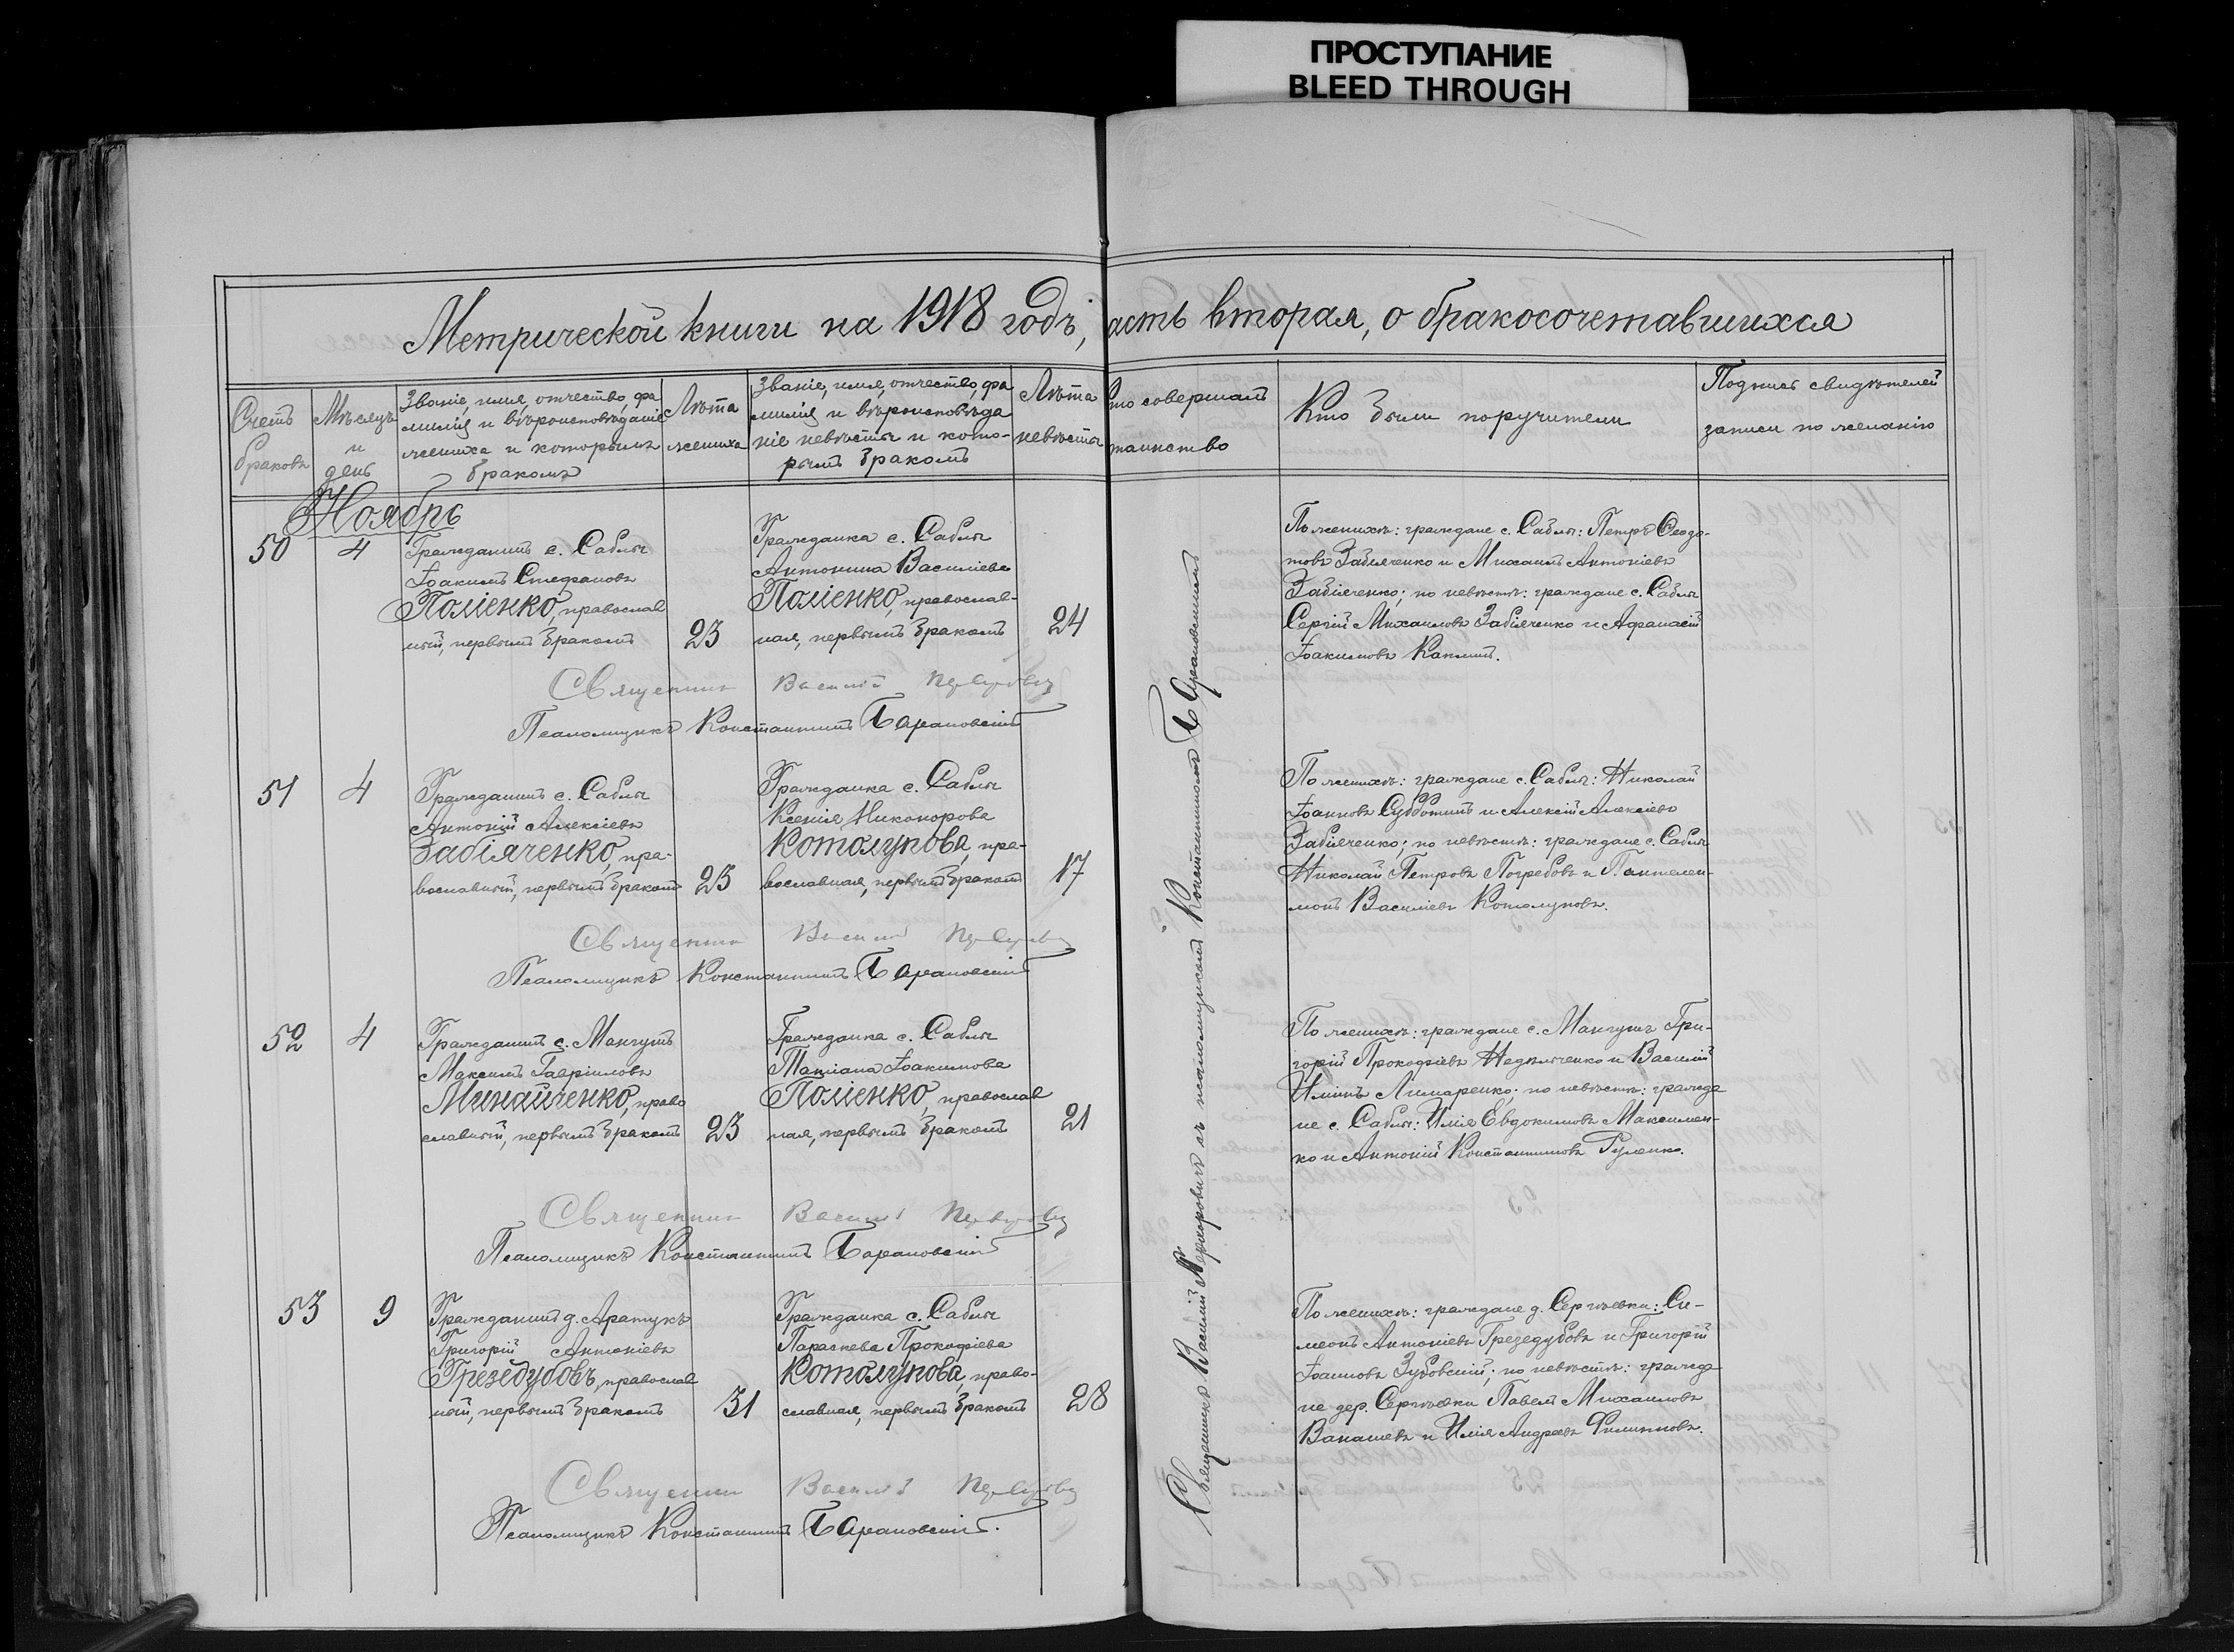 ПРОСТУПАНИЕ
BLEED THROUGH
Метрической книги на 1918 годъ, асть вторая, о бракосочетавшихся
Счетъ браковъ
Мѣсяцъ и день
Званіе, имя, отчество, фа
милія и вѣроисповѣданіе
жениха и которымъ
бракомъ
Лѣта жениха
Званіе, имя, отчество, фа
милія и вѣроисповѣда
ніе невѣсты и кото-
рымъ бракомъ
Лѣта невѣсты
то совершалъ
таинство
Кто были поручители
Подпись свидѣтелей
записи по желанію
Ноябрь
50
4
Гражданинъ с. Саблы
Іоакимъ Стефановъ
Поліенко, православ
ный, первымъ бракомъ
23
Гражданка с. Саблы
Антонина Василіева
Поліенко, православ-
ная, первымъ бракомъ
24
По женихѣ: граждане с. Саблы: Петръ Ѳеодо-
товъ Забіяченко и Михаилъ Антоніевъ
Забіяченко; по невѣстѣ: граждане с. Саблы
Сергій Михаиловъ Забіяченко и Афанасій
Іоакимовъ
Священникъ Василій
Псаломщикъ Константинъ Барановскій
51
4
Гражданинъ с. Саблы
Антоній Алексіевъ
Забіяченко, пра-
вославный, первымъ бракомъ
23
Гражданка с. Саблы
Ксенія Никонорова
Котолупова, пра-
вославная, первымъ бракомъ
17
По женихѣ: граждане с. Саблы: Николай
Іоанновъ Субботинъ и Алексій Алексіевъ
Забіяченко; по невѣстѣ: граждане с. Саблы
Николай Петровъ Погребовъ и Пантелеи-
монъ Василіевъ Котолуповъ.
Священникъ Василій
Псаломщикъ Константинъ Барановскій
52
4
Гражданинъ с. Мангушъ
Максимъ Гавріиловъ
Минайченко, право
славный, первымъ бракомъ
23
Гражданка с. Саблы
Татіана Іоакимова
Поліенко, православ
ная, первымъ бракомъ
21
По женихѣ: граждане с. Мангушъ Гри-
горій Прокофіевъ Недѣльченко и Василій
Ильинъ Лимаренко; по невѣстѣ: гражда
не с. Саблы: Илія Евдокимовъ Максимен-
ко и Антоній Константиновъ Руденко.
Священникъ Василій
Псаломщикъ Константинъ Барановскій
53
9
Гражданинъ д. Аратукъ
Григорій Антоніевъ
Грезедубовъ, православ
ный, первымъ бракомъ
31
Гражданка с. Саблы
Параскева Прокофіева
Котолупова, право-
славная, первымъ бракомъ
28
По женихѣ: граждане д. Сергѣевки: Си-
меонъ Антоніевъ Грезедубовъ и Григорій
Іоанновъ Зубовскій; по невѣстѣ: гражда
не дер. Сергѣевки Павелъ Михаиловъ
и Илія Андреевъ Филипповъ.
Священникъ Василій
Псаломщикъ Константинъ Барановскій.
Священникъ Василій съ псаломщикомъ Константиномъ Барановскимъ